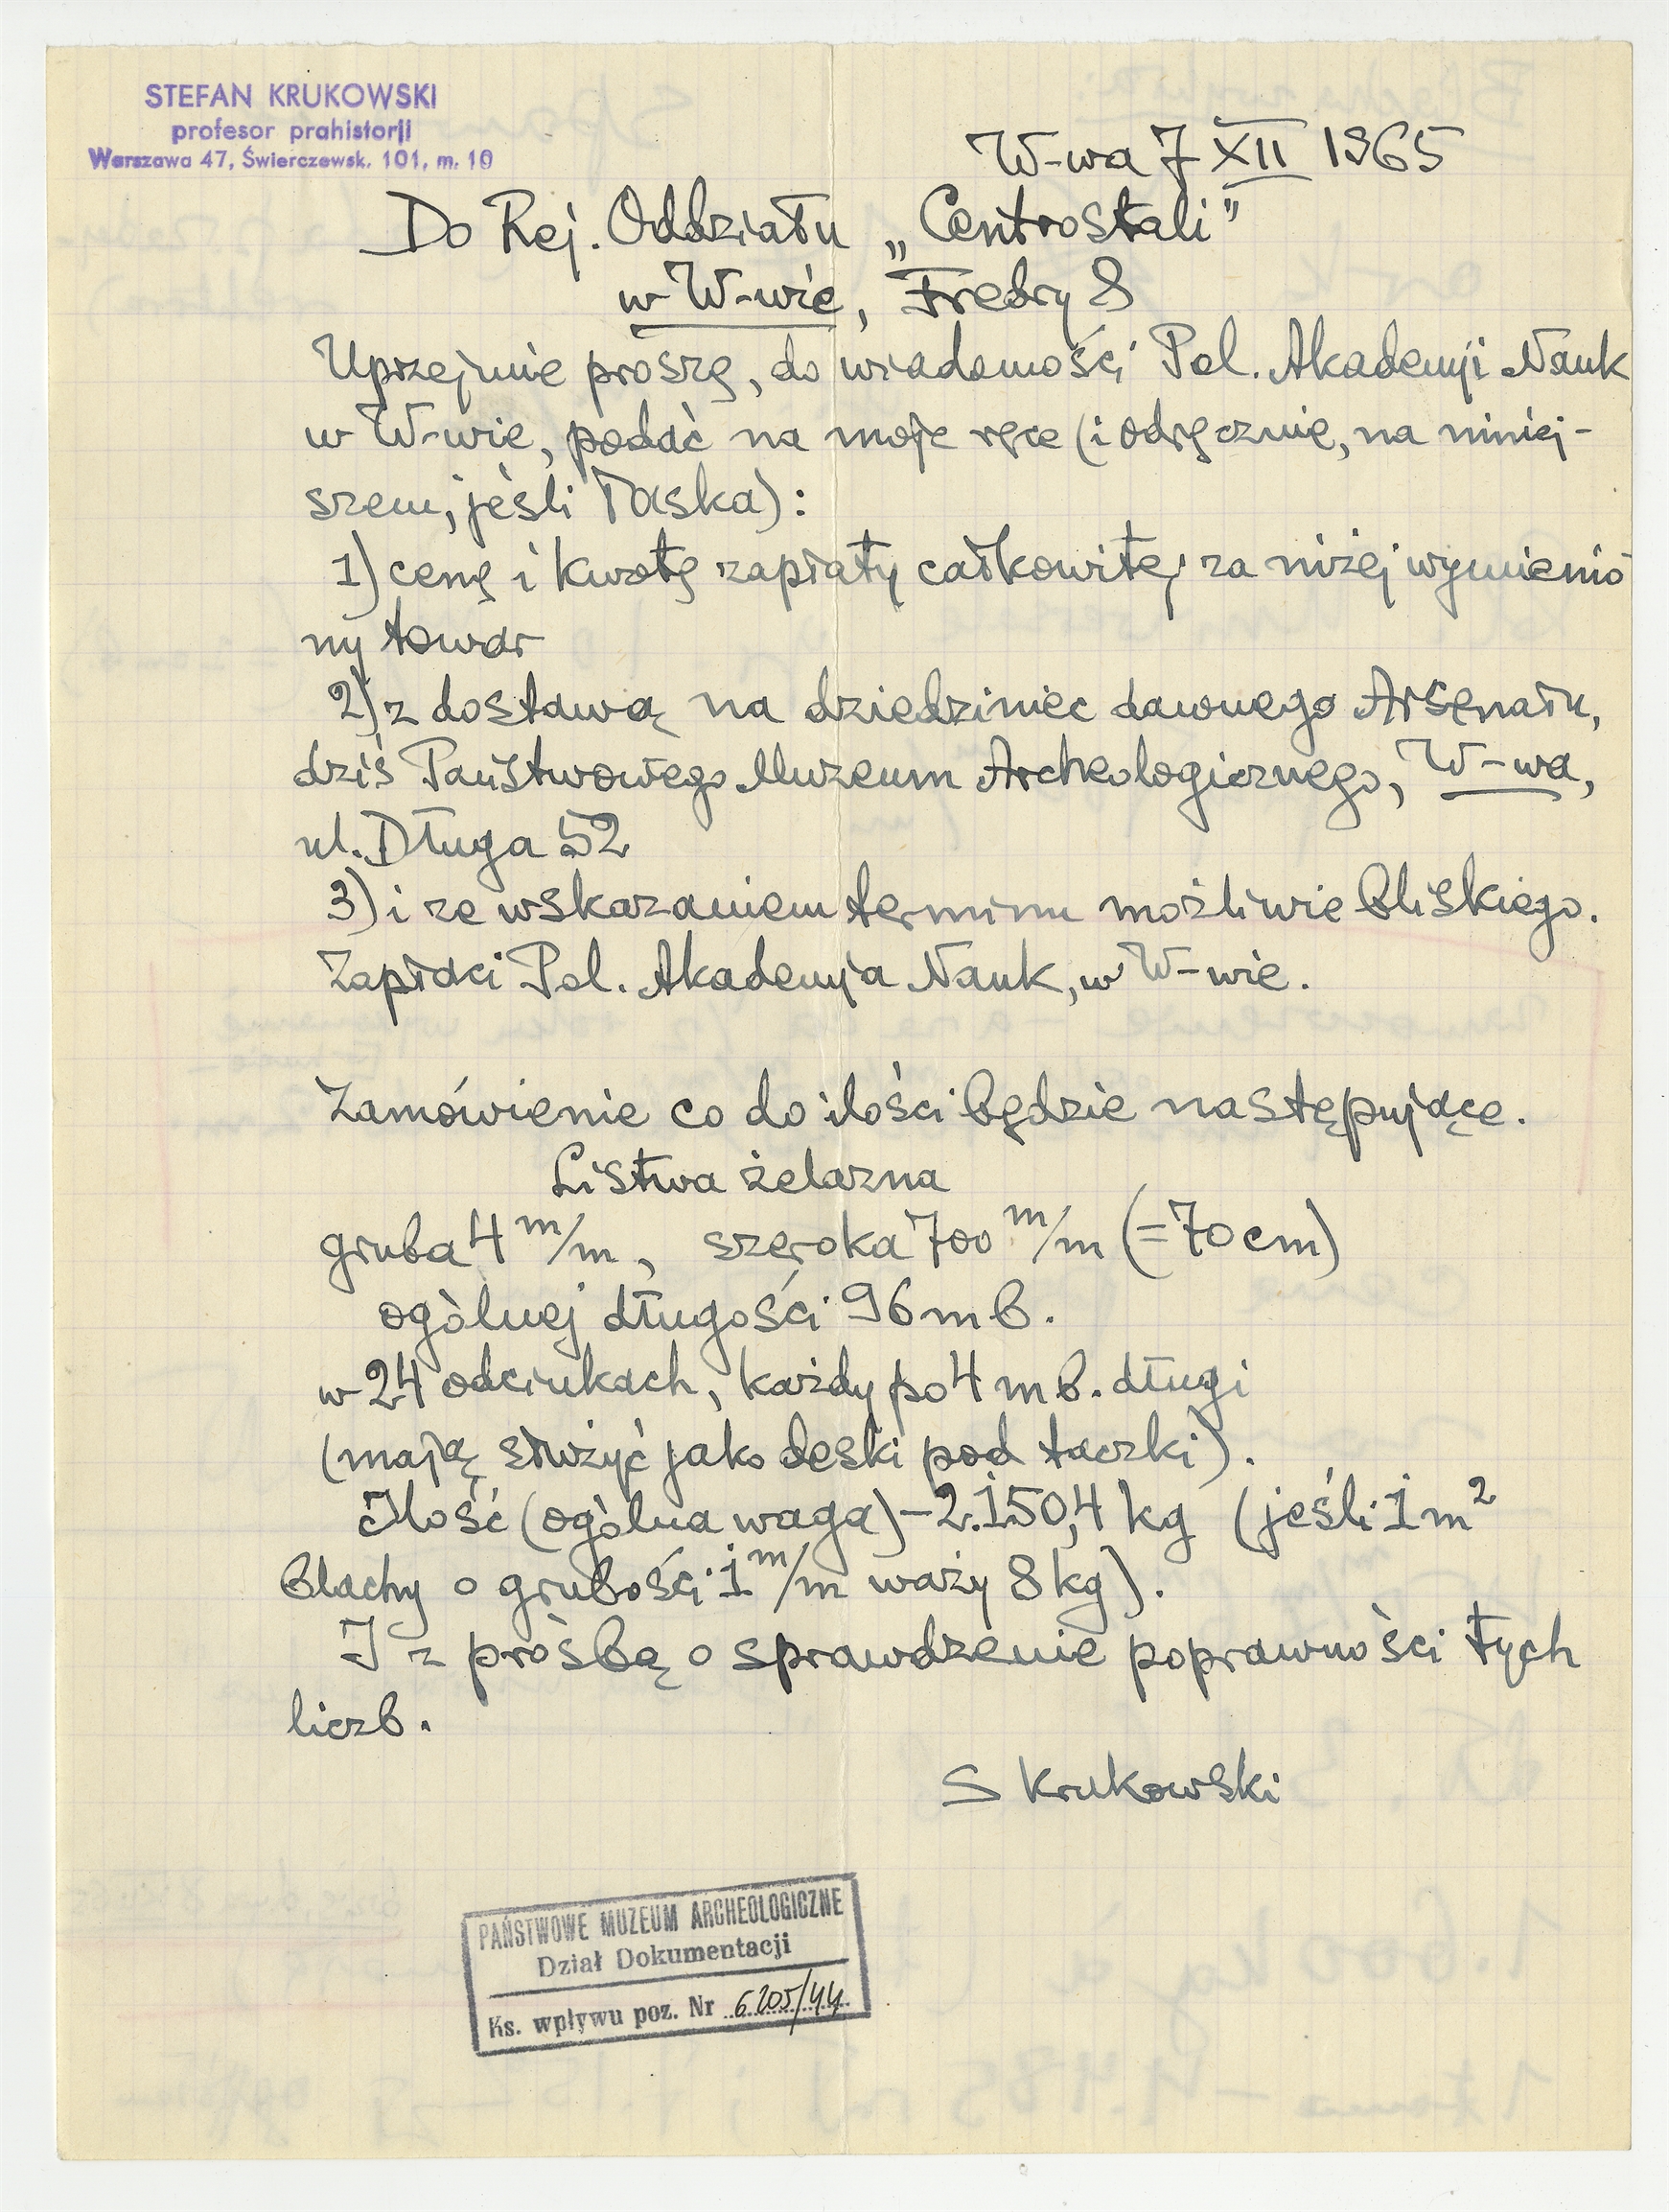 STEFAN KRUKOWSKI
profesor prahistorji
Warszawa 47, Świerczewsk. 101, m. 10
W-wa 7 XII 1965
Do Rej. Oddziału „Centrostali”
w W-wie, Fredry 8
Uprzejmie proszę, do wiadomości Pol. Akademji Nauk
w W-wie, podać na moje ręce (i odręcznie, na niniej-
szem, jeśli łaska):
1) cenę i kwotę zapłaty całkowitej za niżej wymienio
ny towar
2) z dostawą na dziedziniec dawnego Arsenału,
dziś Państwowego Muzeum Archeologicznego, W-wa,
ul. Długa 52
3) i ze wskazaniem terminu możliwie bliskiego.
Zapłaci Pol. Akademja Nauk, w W-wie.
Zamówienie co do ilości będzie następujące.
Listwa żelazna
gruba 4 m/m, szeroka 700 m/m (=70 cm)
ogólnej długości 96 m b.
w 24 odcinkach, każdy po 4 m b. długi
(mają służyć jako deski pod taczki).
Ilość (ogólna waga) – 2.150,4 kg (jeśli 1 m²
blachy o grubości 1 m/m waży 8 kg).
I z prośbą o sprawdzenie poprawności tych
liczb.
S Krukowski
PAŃSTWOWE MUZEUM ARCHEOLOGICZNE
Dział Dokumentacji
Ks. wpływu poz. Nr 6205/44